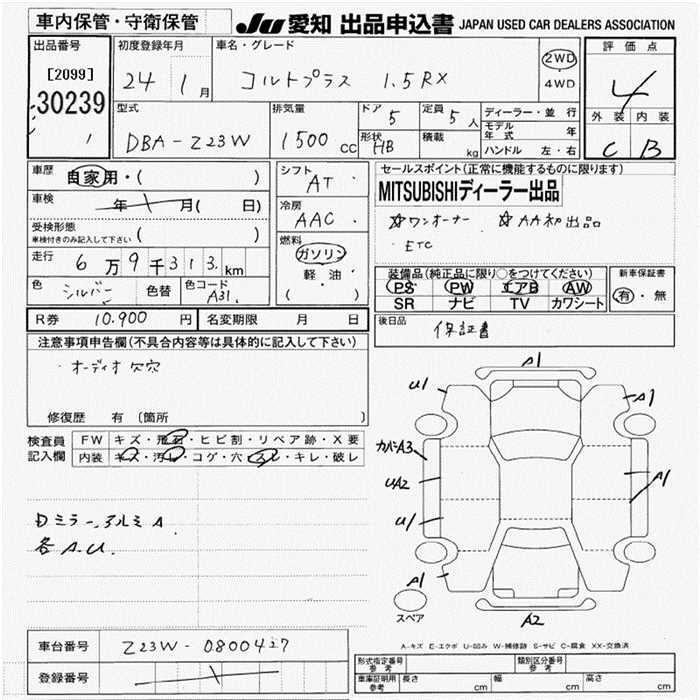 車内保管・守衛保管
JU 愛知 出品申込書 JAPAN USED CAR DEALERS ASSOCIATION
出品番号
[2099]
30239
1
初度登録年月
24 1月
車名・グレード
コルトプラス 1.5RX
2WD
4WD
評価点
4
外装 内装
C B
型式
DBA-Z23W
排気量
1500 CC
ドア 5
形状 HB
定員 5人
積載 kg
ディーラー・並行
モデル年式 年
ハンドル 左・右
車歴 自家用・( )
車検 年 月( 日)
受検形態
車検付きのみ記入して下さい ( )
走行 6万9千313km
色 シルバー 色替
色コード A31
シフト
AT
冷房
AAC
燃料
ガソリン
軽・油
( )
セールスポイント(正常に機能するものに限ります)
MITSUBISHIディーラー出品
☆ワンオーナー ☆AA初出品
ETC
装備品(純正品に限り○をつけてください)
PS PW エアB AW
SR ナビ TV カワシート
新車保証書
有・無
R券 10.900円
名変期限 月 日
後日品 保証書
注意事項申告欄(不具合内容等は具体的に記入して下さい)
・オーディオ欠穴
修復歴 有 〔箇所 〕
検査員
記入欄
FW キズ・飛石・ヒビ割・リペア跡・X要
内装 キズ・汚レ・コゲ・穴・スレ・キレ・破レ
Dミラー、アルミA
各A.U.
A1
U1
A1
カバーA3
UA2
A1
U1
A1
A1
スペア
A2
A-キズ E-エクボ U-凹み W-補修跡 S-サビ C-腐食 XX-交換済
車台番号 Z23W-0800427
登録番号
形式指定番号
参考
類別区分番号
参考
車庫証明用
参考
長さ cm 幅 cm 高さ cm